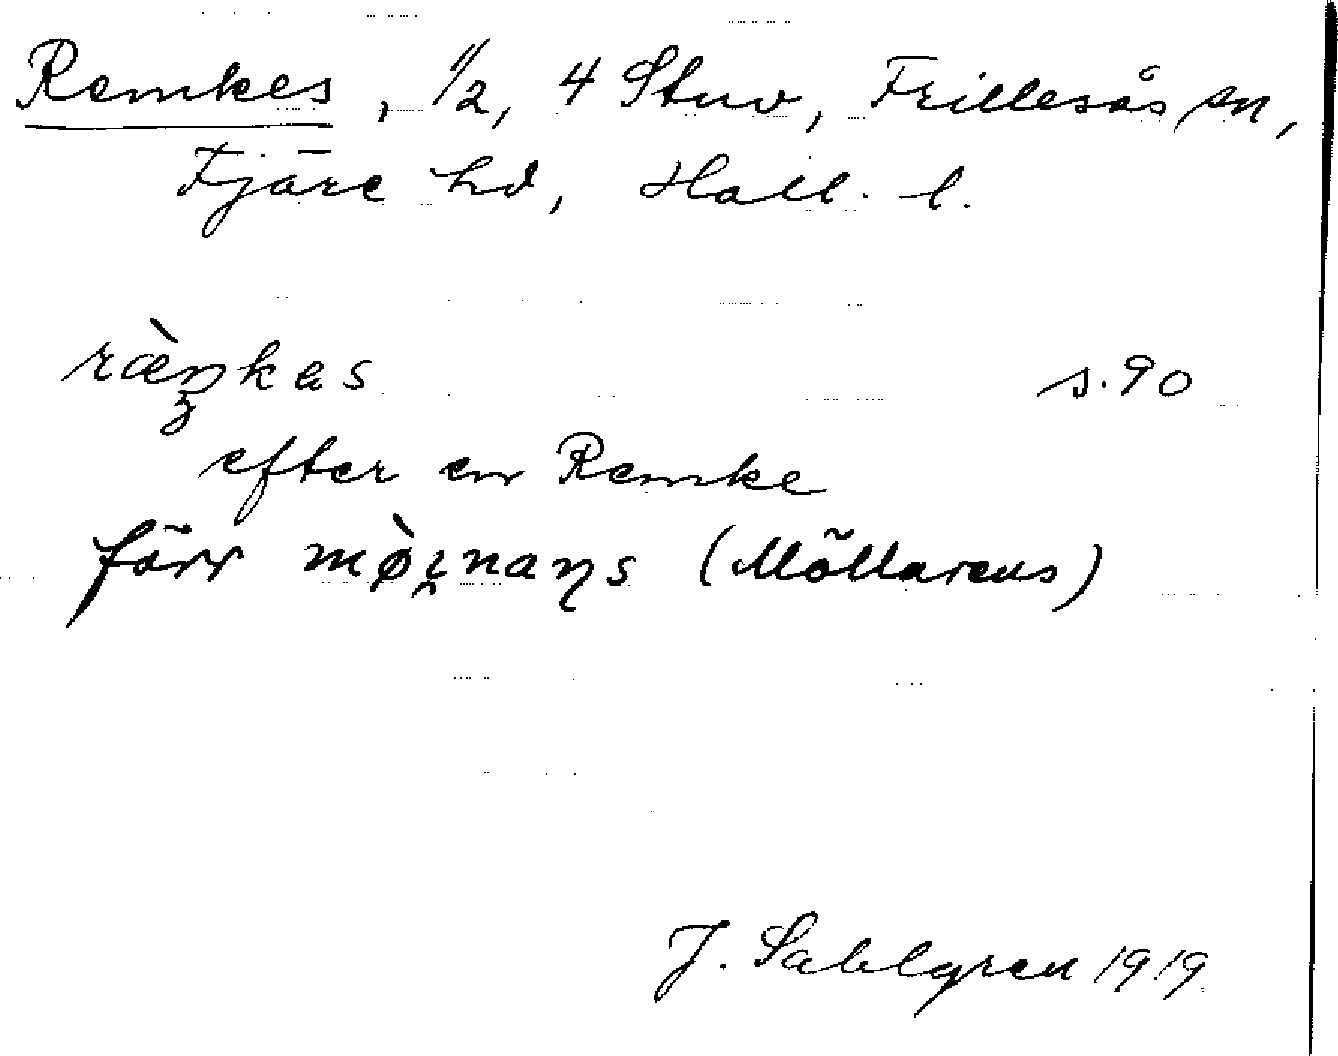 Remkes, 1/2, 4 Stuv, Frillesås sn,
Fjäre hd, Hall. l.
ræ̀ŋkes s. 90
efter en Remke
förr (Möllarens)
J. Sahlgren 1919